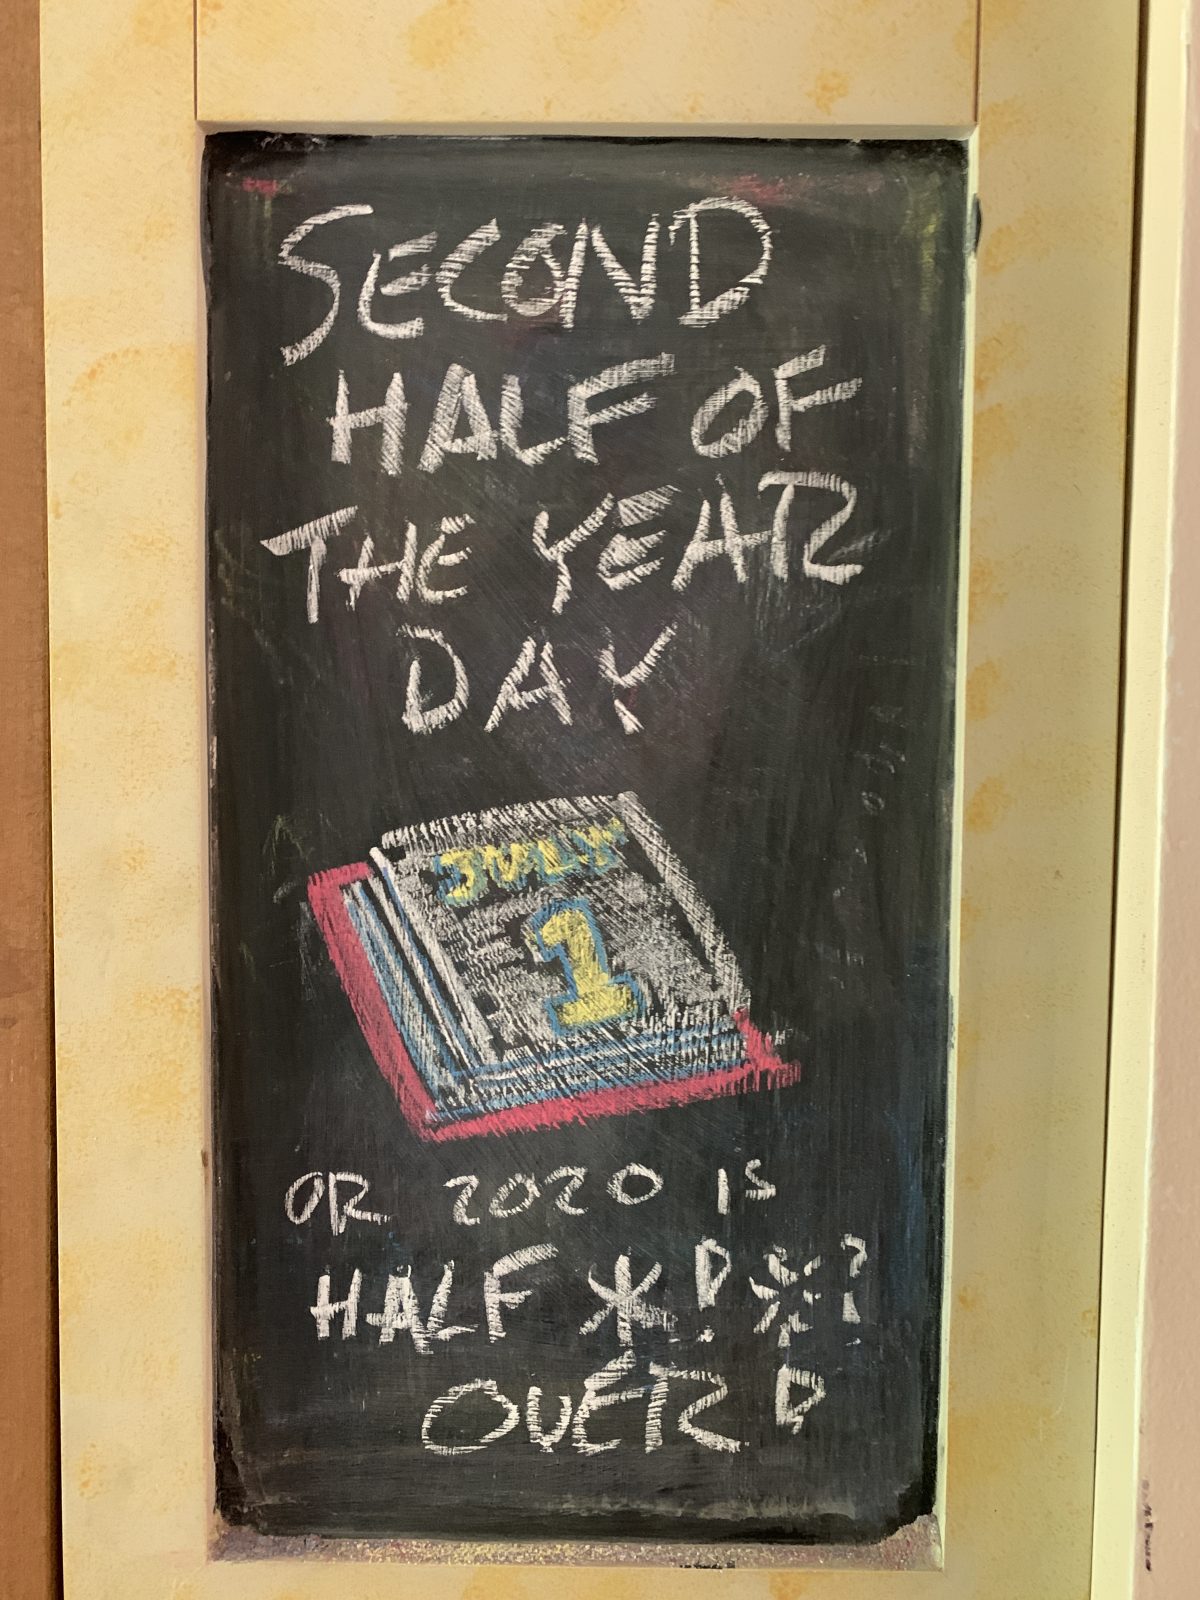 SECOND
HALF OF
THE YEAR
DAY
JULY
1
OR 2020 IS
HALF *!*?
OVER!